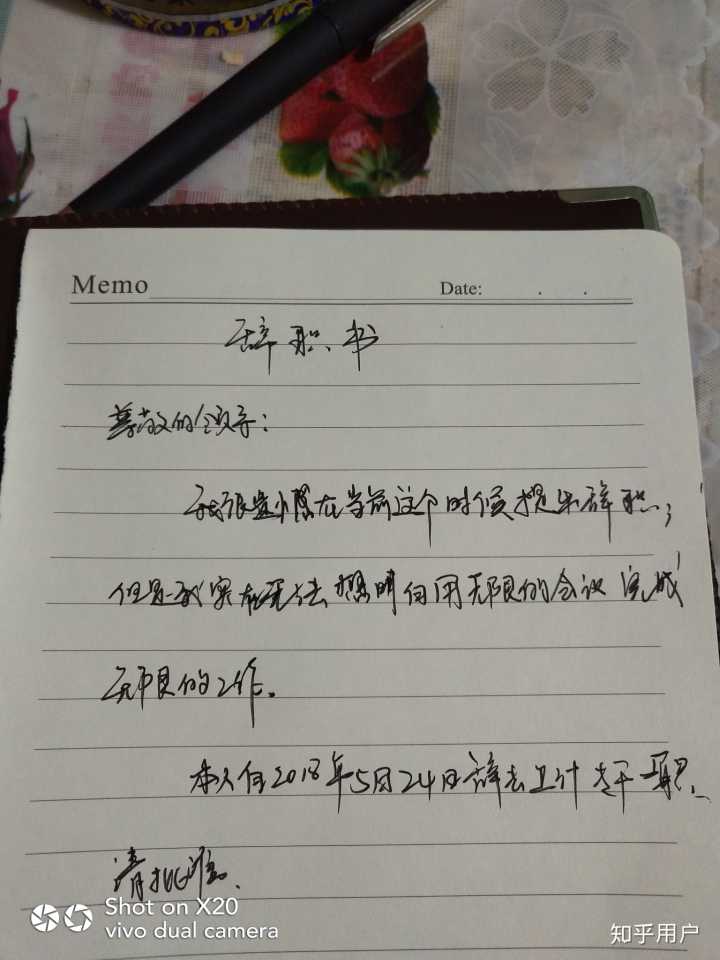 Memo
Date: . .
辞职书
尊敬的领导：
我很遗憾在当前这个时候提出辞职，
但是我实在无法想明白用无限的会议完成
无限的工作。
本人自2018年5月24日辞去卫计专干一职。
请批准。
Shot on X20
vivo dual camera
知乎用户